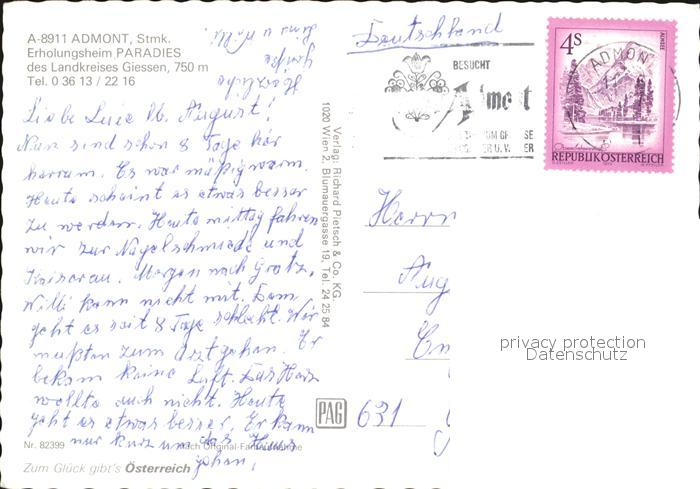 A-8911 ADMONT, Stmk.
Erholungsheim PARADIES
des Landkreises Giessen, 750 m
Tel. 0 36 13 / 22 16
Liebe Luise lb. August!
Nun sind schon 8 Tage hier
herrum. Es war mäßig warm.
Heute scheint es etwas besser
zu werden. Heute mittag fahren
wir zur Nagelschmiede und
Kaiserau. Morgen nach Gratz.
Willi kann nicht mit. Dem
geht es seit 8 Tage schlecht. Wir
mußten zum Arzt gehen. Er
bekam keine Luft. Das Herz
wollte auch nicht. Heute
geht es etwas besser. Er kann
nur kurz um das Haus
gehen.
Herzliche
Grüße
u Willi
Nr. 82399
nach Original-Farbaufnahme
Zum Glück gibt's Österreich
Verlag: Richard Pietsch & Co. KG.
1020 Wien 2, Blumauergasse 19, Tel. 24 25 84
PAG
Deutschland
BESUCHT
Admont
ADMON
4S
ALMSEE
REPUBLIK ÖSTERREICH
Herrn
Aug
631
privacy protection
Datenschutz